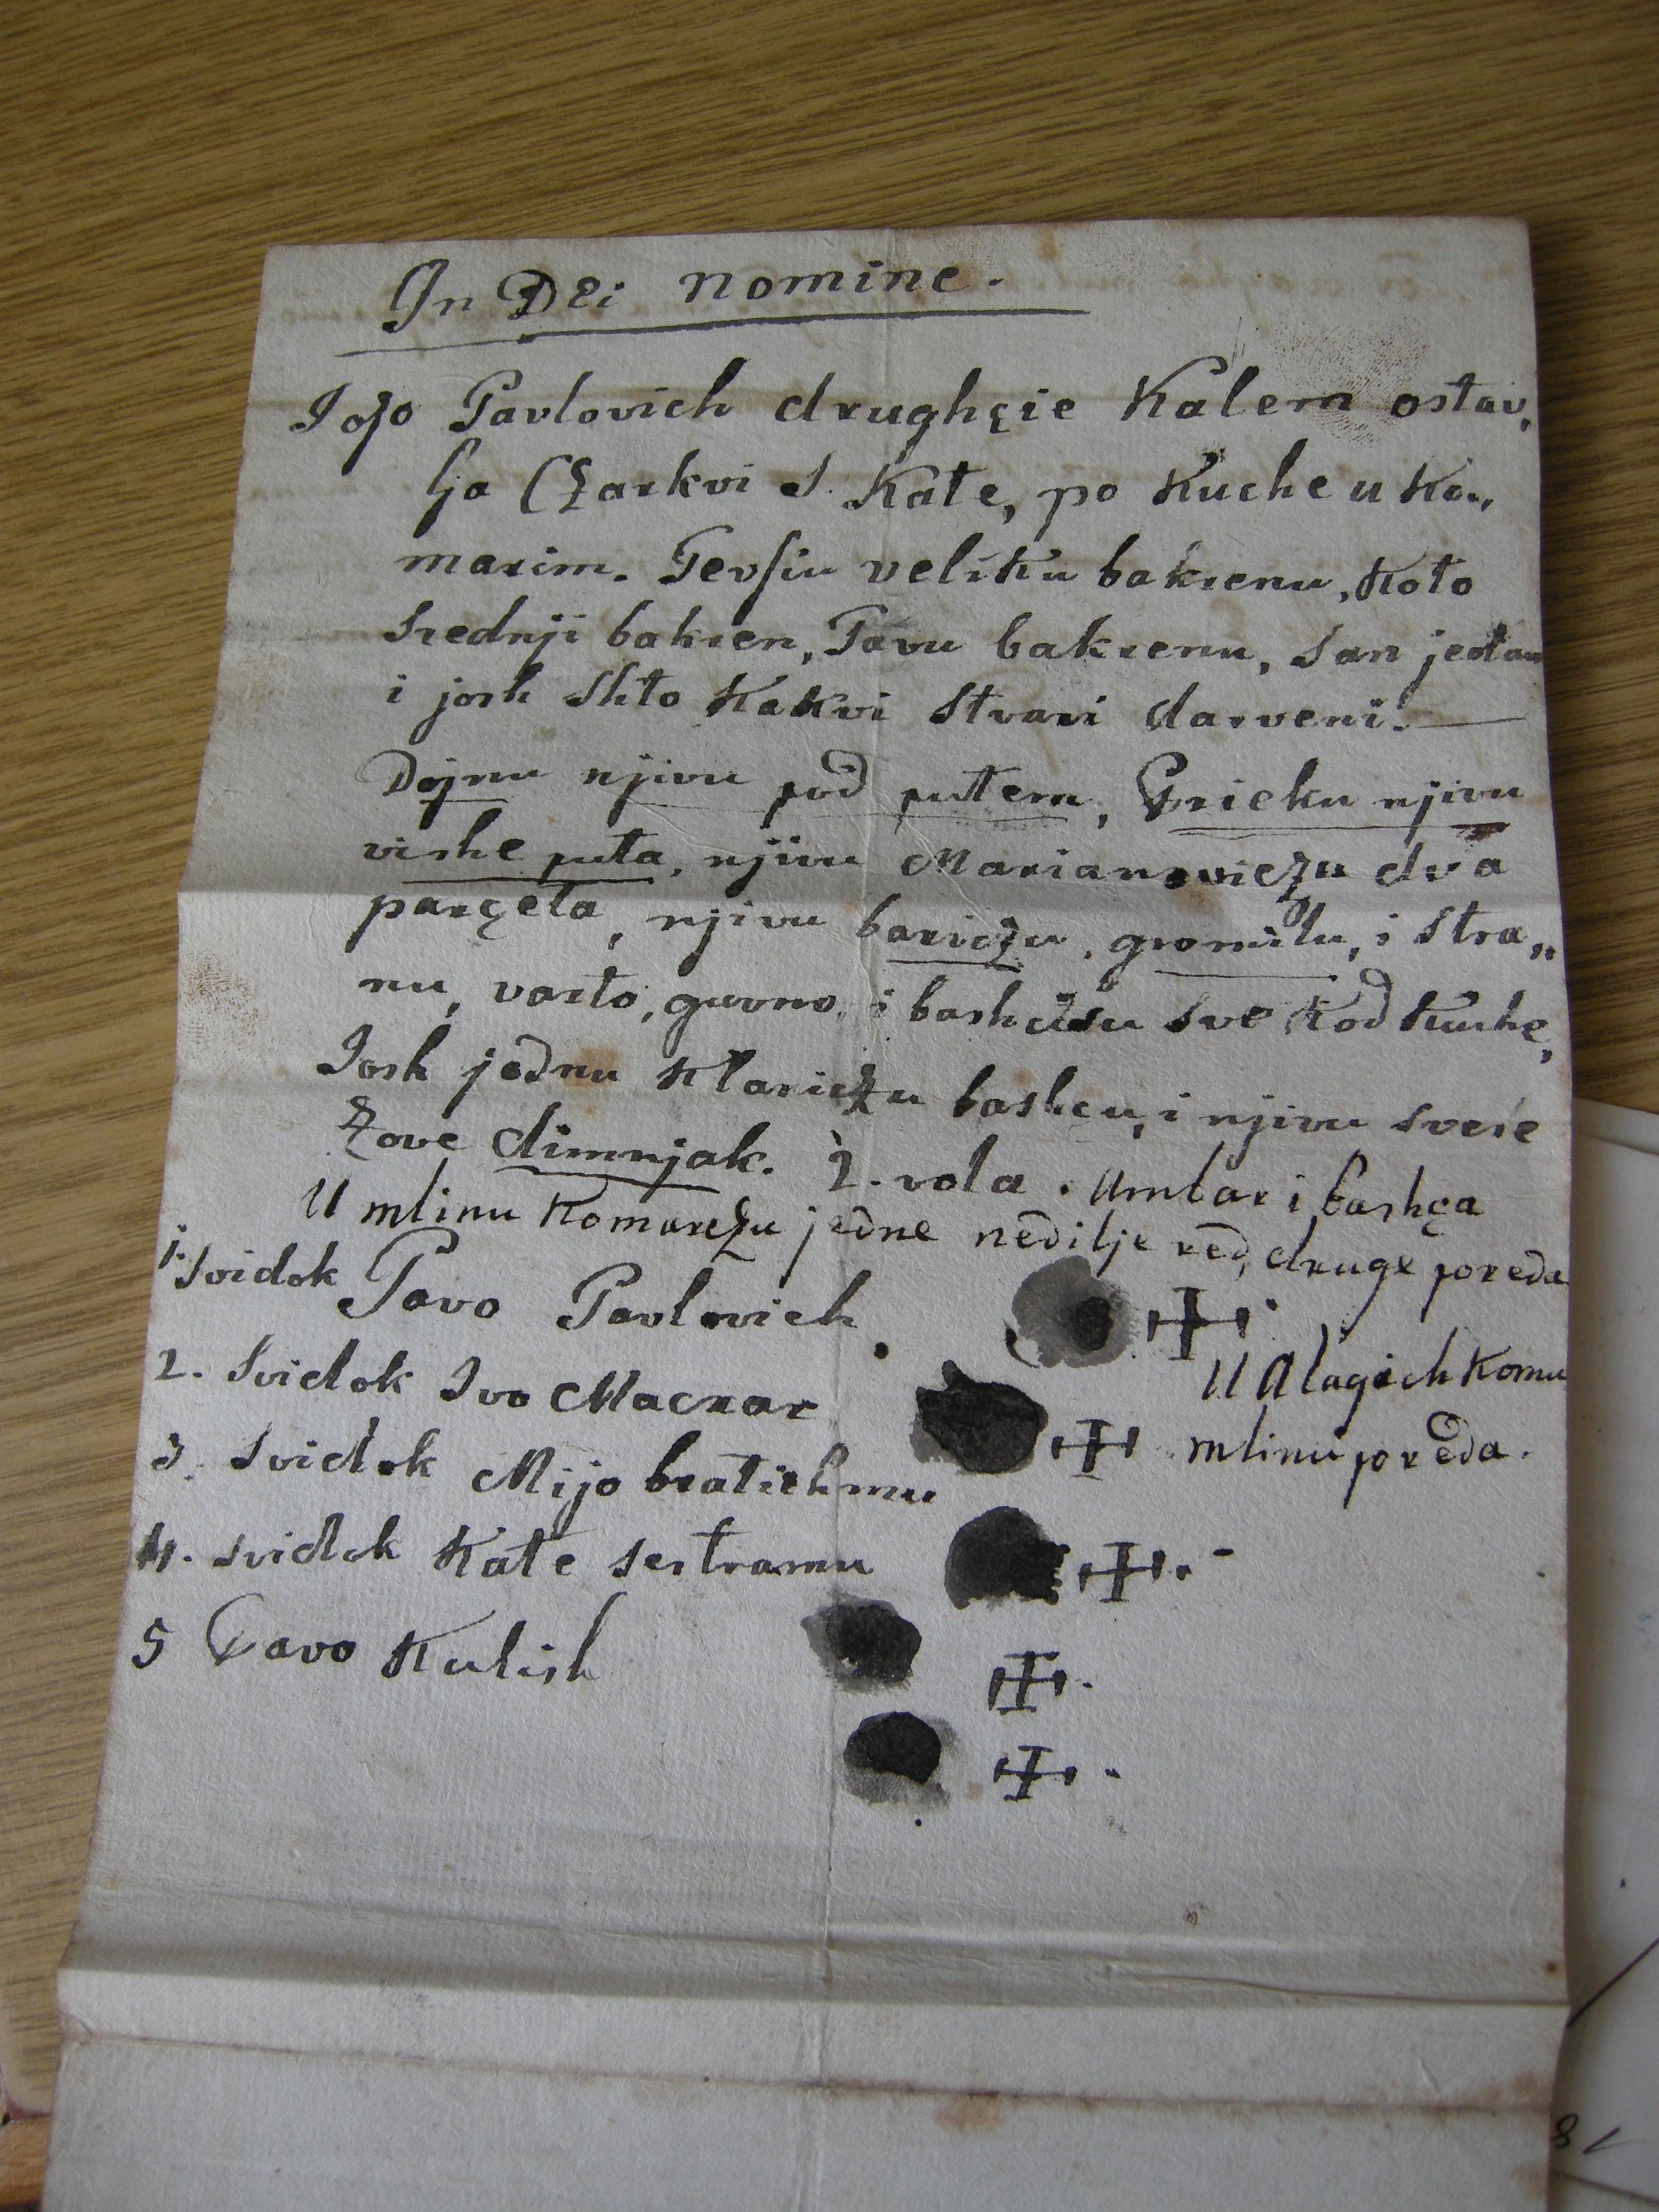 In Dei nomine.
Jozo Pavlovich drughçie Kalem ostav,
lja Czarkvi S. Kate, po Kuche u Ko,,
marim. Tevsiu veliku bakrenu, Koto
srednji bakren, Tavu bakrenu, San jedan
i josh Shto Kakvi Stvari darveni.
Dojnu njivu pod putem, Prieku njivu
vishe puta, njivu Marianoviczu dva
parçeta, njivu bariczu, gromilu, i Stra,,
nu, varto, guvno, i bashczu sve Kod Kuche,
Josh jednu Klariczu bashçu, i njivu svese
Zove dimnjak. 2. vola. Ambar i bashça
U mlinu Komarczu jedne nedilje red, druge poreda
1. Svidok Pavo Pavlovich
U Alagich Komu
2. Svidok Ivo Mackar
mlinu poreda.
3. Svidok Mijo bratichmu
4. svidok Kate sestramu
5 Pavo Kulish
81